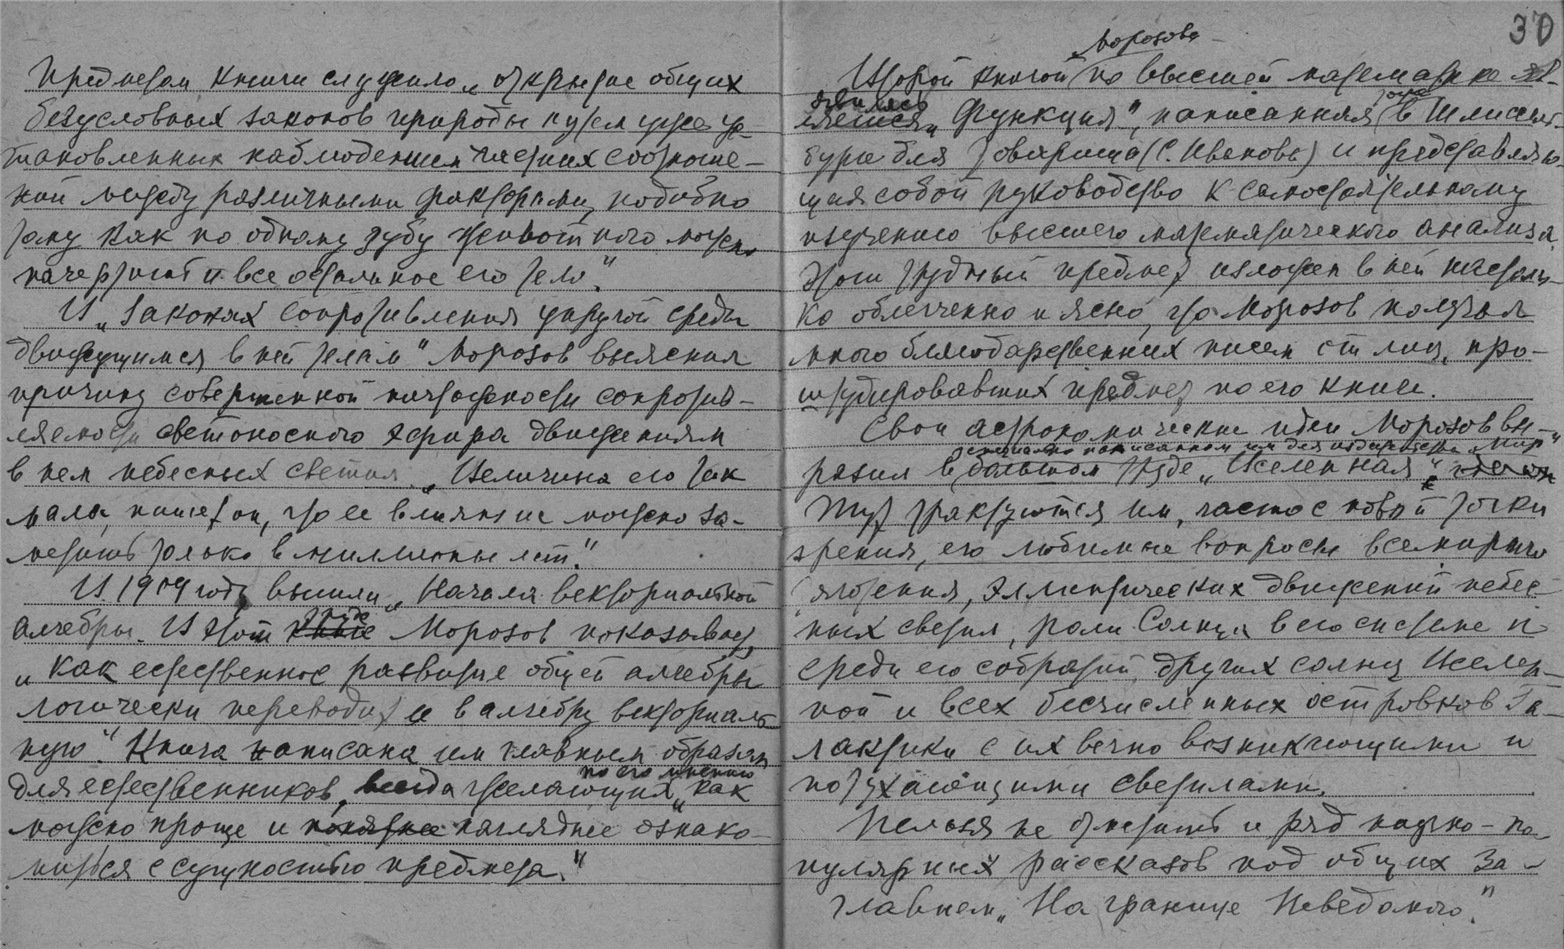 Предметом книги служило „открытие общих
безусловных законов природы путем уже ус-
тановленных наблюдением частных соотноше-
ний между различными факторами, подобно
тому как по одному зубу животного можно
начертить и все остальное его тело."
В „Законах сопротивления упругой среды
движущимся в ней телам" Морозов выяснил
причину совершенной ничтожности сопротив-
ляемости светоносного эфира движениям
в нем небесных светил. „Величина его так
мала, пишет он, что ее влияние можно за-
метить только в миллионы лет."
В 1909 году вышли „Начала векториальной
алгебры. В этой книге труде Морозов показывает,
„как естественное развитие общей алгебры
логически переводит ее в алгебру векториаль-
ную". Книга написана им главным образом
по его мнению
для естественников, всегда желающих „как
можно проще и понятнее нагляднее ознако-
миться с сущностью предмета."
30
Морозова
Второй книгой по высшей математике яв-
явилась
ляется „Функция", написанная тоже в Шлиссель-
бурге для товарища (С. Иванова) и представляю-
щая собой руководство к самостоятельному
изучению высшего математического анализа.
Этот трудный предмет изложен в ней настоль-
ко облегченно и ясно, что Морозов получал
много благодарственных писем от лиц, про-
штудировавших предмет по его книге.
Свои астрономические идеи Морозов вы-
специально написанном им для издательства „Мир"
разил в большом труде „Вселенная", где он
Тут трактуются им, часто с новой точки
зрения, его любимые вопросы всемирного
тяготения, эллиптических движений небес-
ных светил, роли Солнца в его системе и
среди его собратий, других солнц Вселен-
ной и всех бесчисленных островков Га-
лактики с их вечно возникающими и
потухающими светилами.
Нельзя не отметить и ряд научно-по-
пулярных рассказов под общим за-
главием „На границе Неведомого."